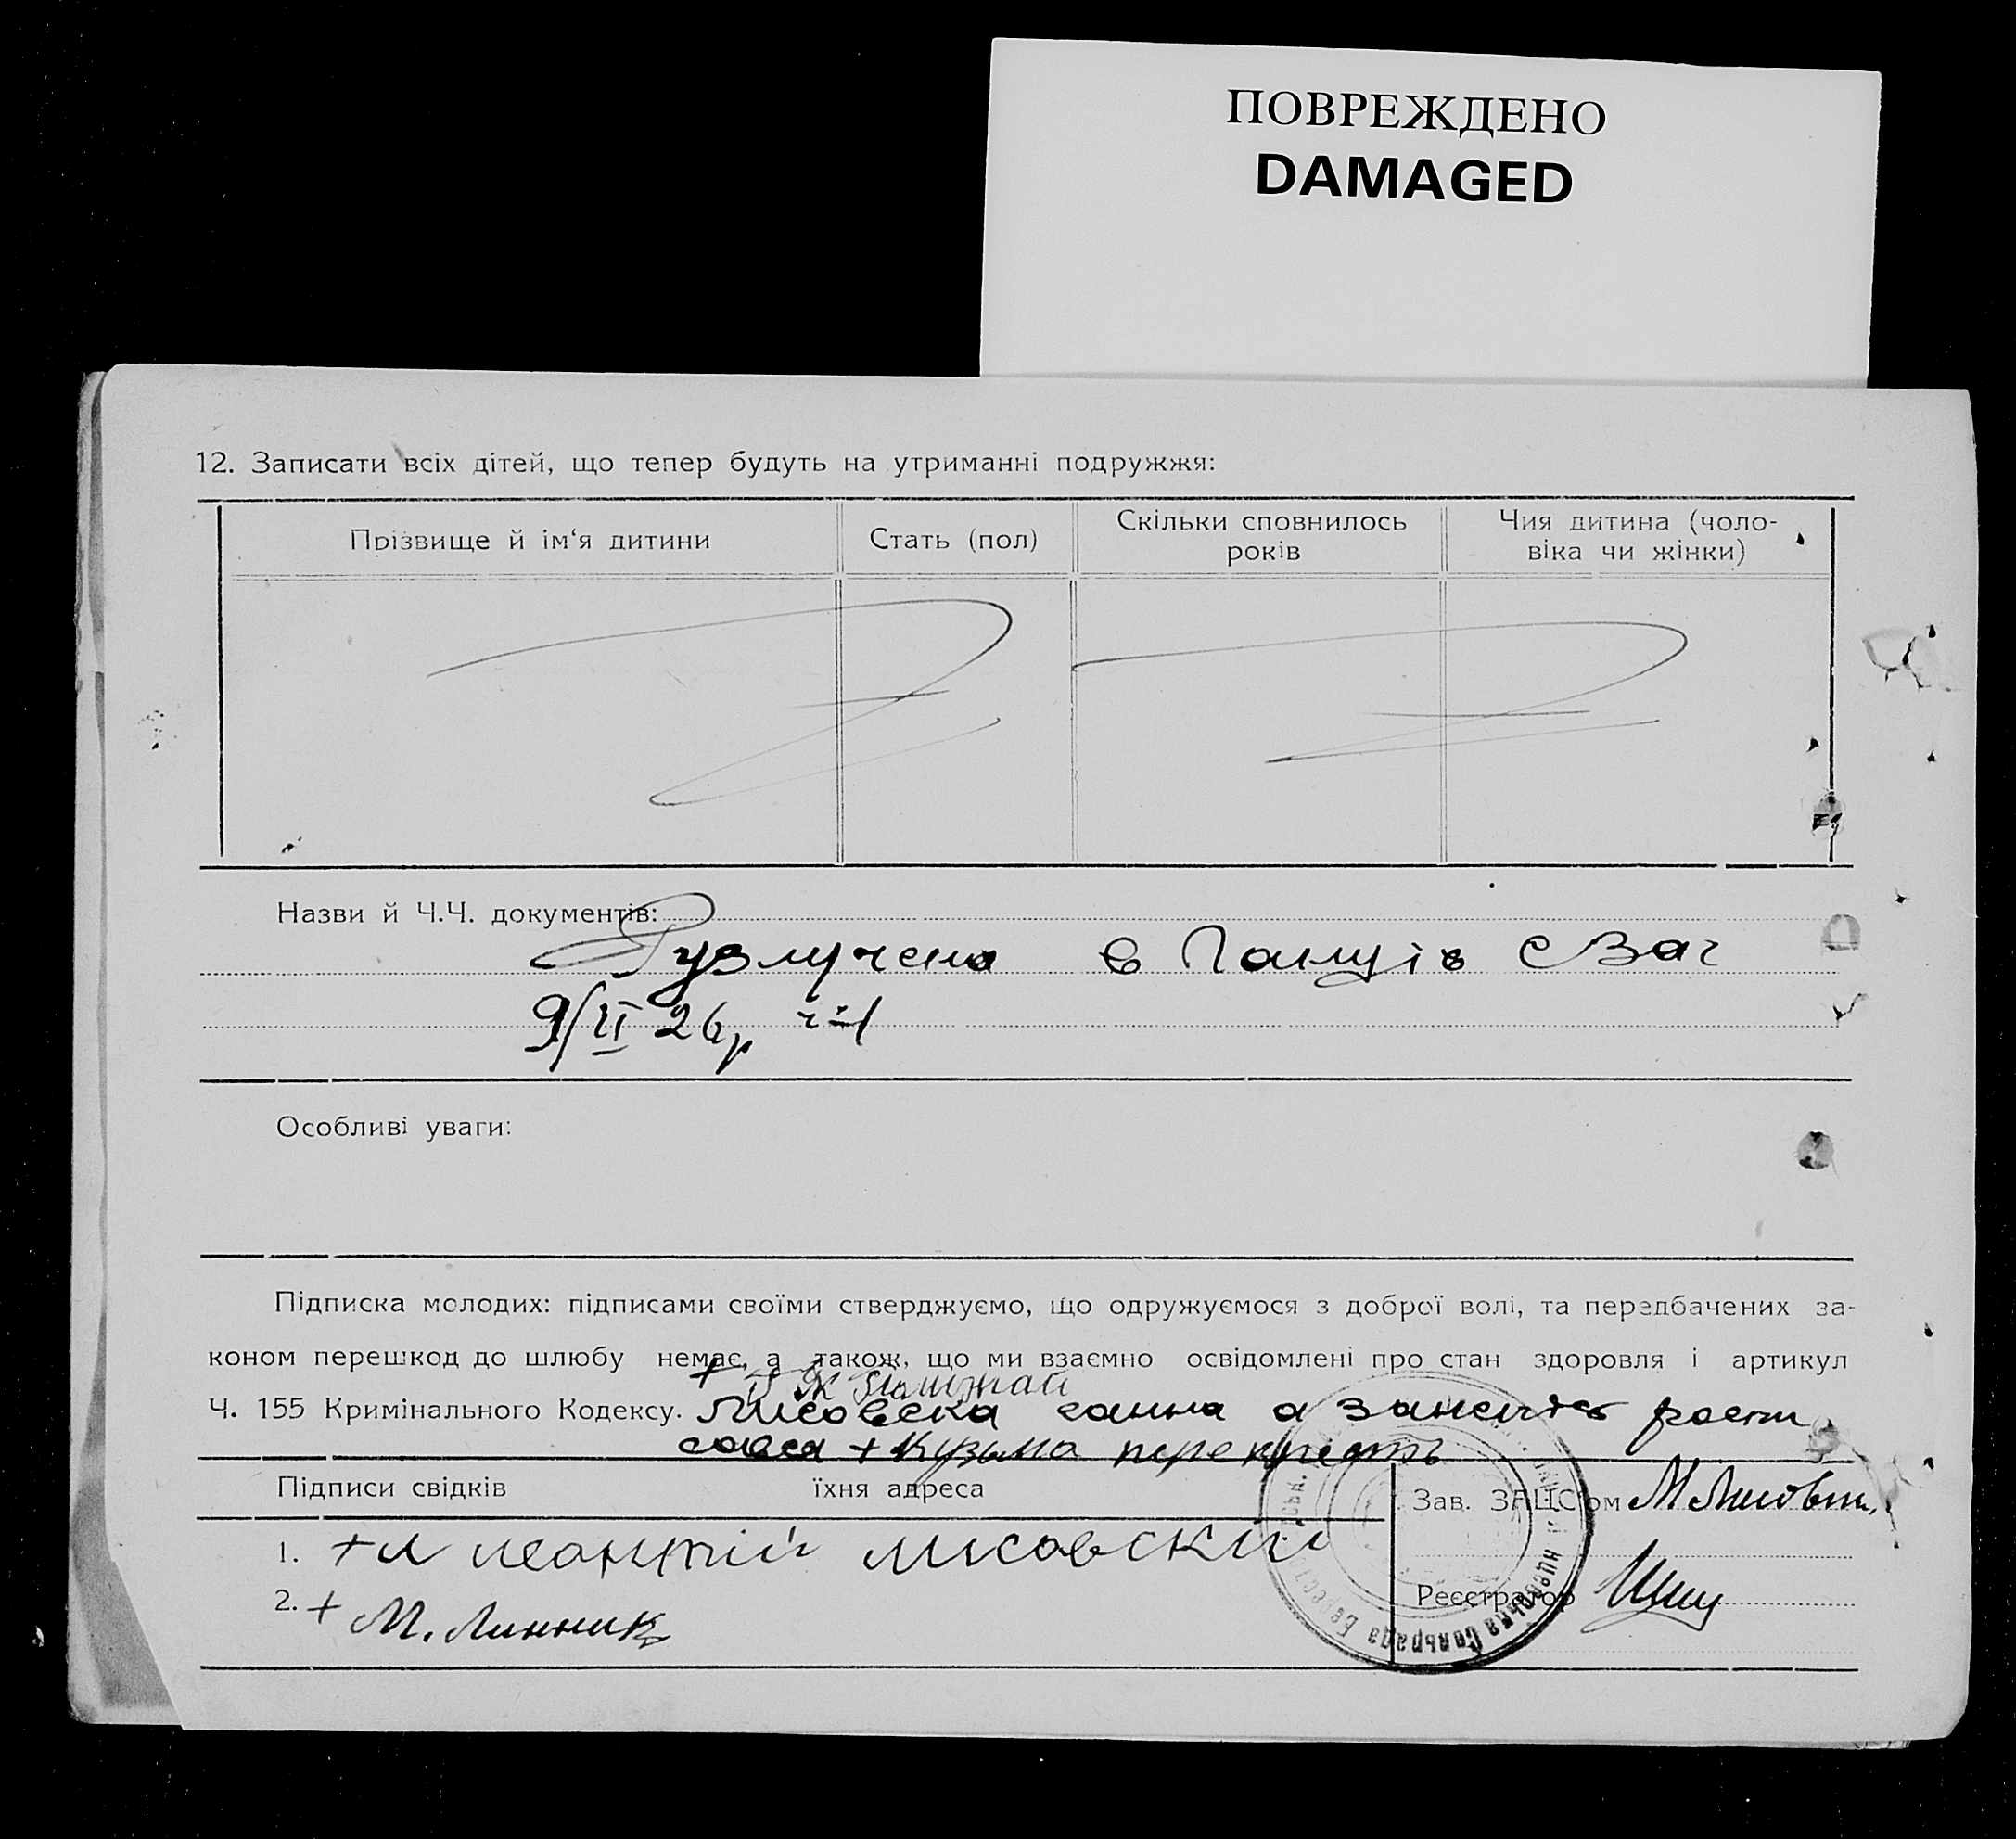 ПОВРЕЖДЕНО
DAMAGED
12. Записати всіх дітей, що тепер будуть на утриманні подружжя:
Прізвище й ім‘я дитини
Стать (пол)
Скільки сповнилось
років
Чия дитина (чоло-
віка чи жінки)
Назви й Ч.Ч. документів:
в
9/VI 26р ч-1
Особливі уваги:
Підписка молодих: підписами своїми стверджуємо, що одружуємося з доброї волі, та передбачених за-
коном перешкод до шлюбу немає, а також, що ми взаємно освідомлені про стан здоровля і артикул
Ч. 155 Кримінального Кодексу. Лисовска ганна а
+ Кузьма
Підписи свідків
їхня адреса
Зав. ЗАЦС‘ом
1. + лисовский
2. + М. Линник
Реєстратор
Сельрада